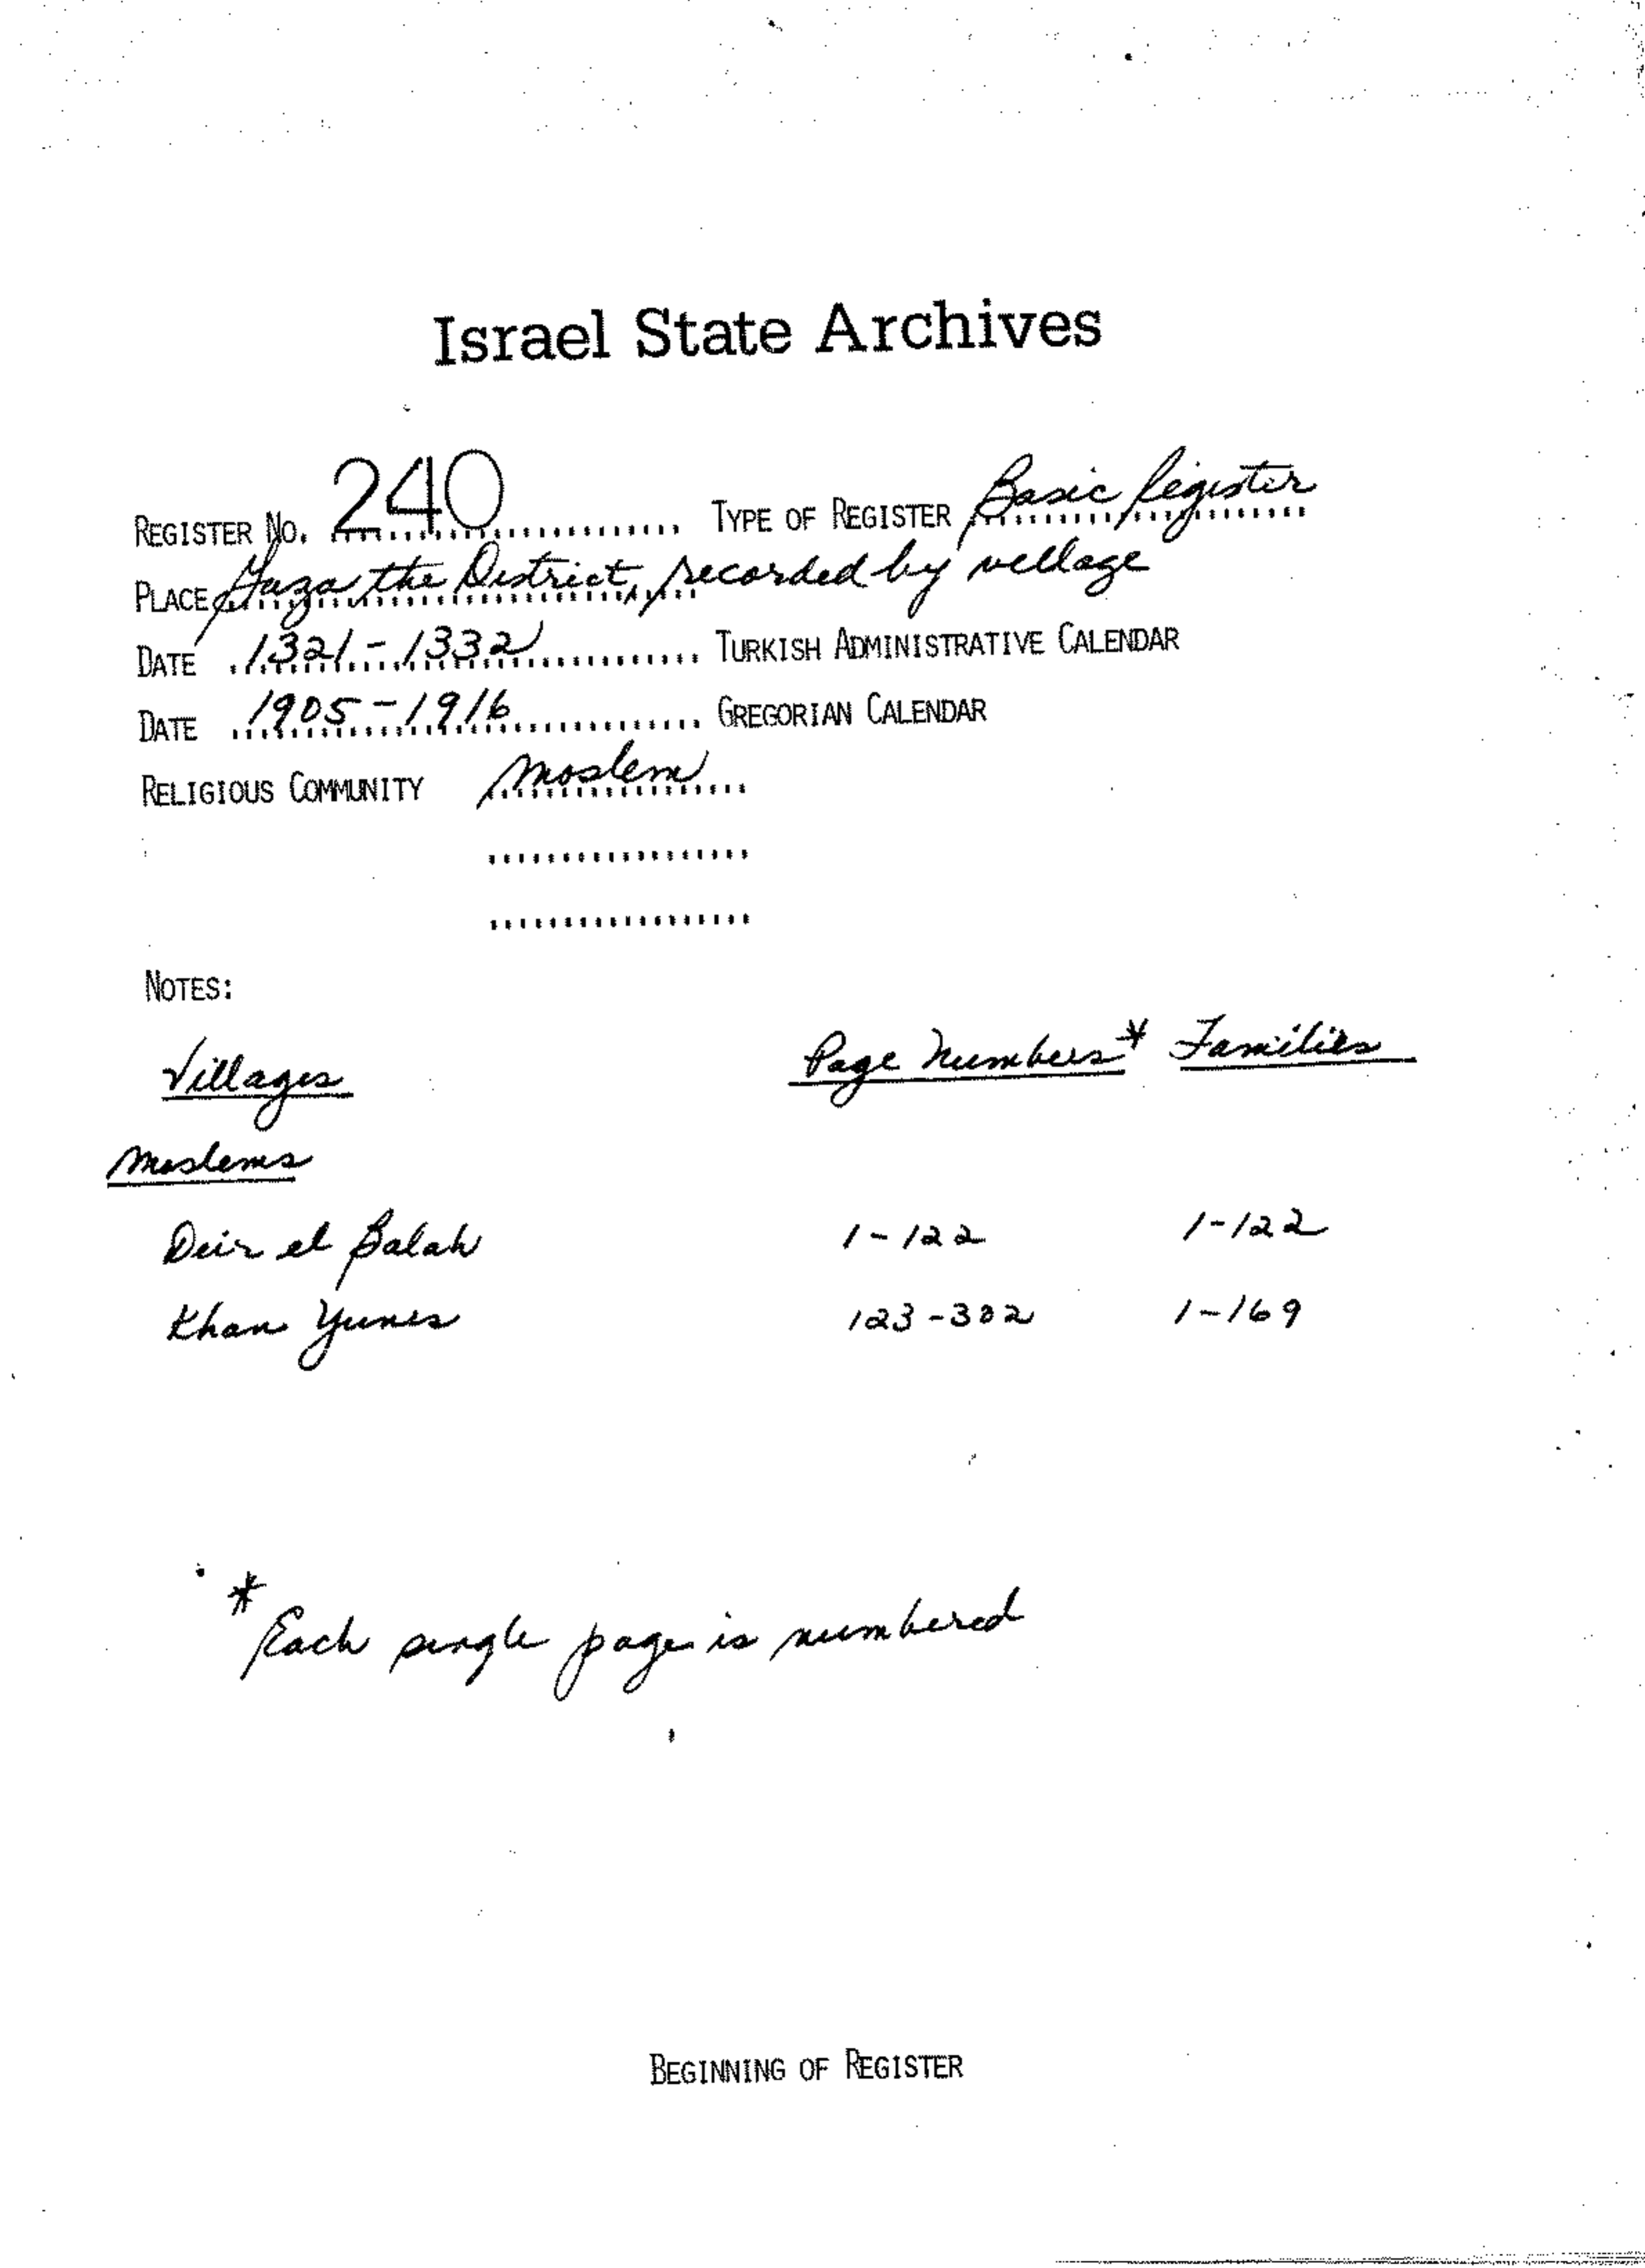 Israel State Archives
REGISTER NO. 240 TYPE OF REGISTER Basic Register
PLACE Gaza the District, recorded by village
DATE 1321-1332 TURKISH ADMINISTRATIVE CALENDAR
DATE 1905-1916 GREGORIAN CALENDAR
RELIGIOUS COMMUNITY Moslem
NOTES:
Villages Page Numbers* Families
Moslems
Deir el Balah 1-122 1-122
Khan Yunes 123-302 1-169
* Each single page is numbered
BEGINNING OF REGISTER